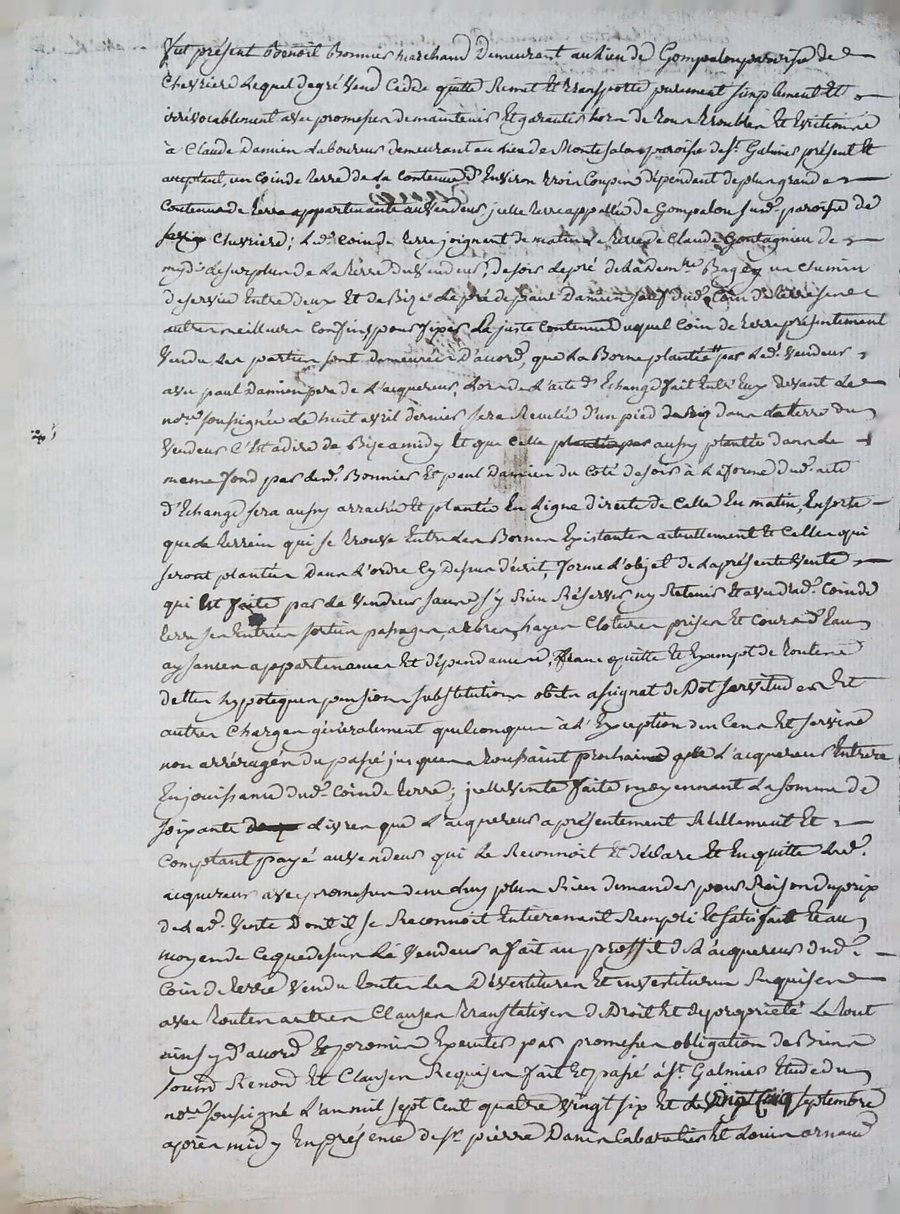 fut présent Benoit Bonnier marchand demeurant au lieu de Gompalon paroisse de
Chevriere lequel de gré vend cedde quitte Remet Et transporte purement simplement Et
irrévocablement avec promesses de maintenir Et garantir hors de tous troubles Et Evictions
à Claude Damien laboureur demeurant au lieu de paroisse de st. Galmier présent Et
acceptant, un coin de terre de la contenue d'Environ trois Coupées dépendent de plus grande
Contenue de terre appartenante au vendeur, jcelle terre appellée de Gompalon sud. paroisse de
Chevriere; led. coin de terre joignant de matin le terre de Claude Gontagnieu de
mydi le surplus de la terre du vendeur, de soir le pré de la dem.lle un chemin
de service Entre deux Et de Bize le pré de paul Damien sauf dud. Coin de terre ses
autres meilleurs confins, pour fixer la juste contenue duquel Coin de terre présentement
Vendu les parties sont demeurées d'accord, que la Borne plantée par led. Vendeur
avec paul Damien pere de l'acquereur, lors de l'acte d'Echange fait Entr'Eux devant le
nore. soussigné le huit avril dernier sera Reculée d'un pied dans la terre du
Vendeur c'Est à dire de Bize à midy Et que celle plantée par aussy plantée dans le
meme fond par led. Bonnier Et paul Damien du Coté de soir à la forme dud. acte
d'Echange sera aussy arrachée Et plantée En ligne directe de Celle du matin, En sorte
que le terrein qui se trouve Entre les Bornes Existantes actuellement Et Celles qui
seront plantées Dans l'ordre Cy Dessus décrit, forme l'objet de la présente Vente
qui Est faite par le Vendeur sans s'y Rien Réserver ny Retenir Et avec dud. Coin de
terre ses Entrées sorties passages, arbres, hayes Clotures prises Et Cours d'Eau
aysances appartenances Et dépendances, franc quitte Et Exempt de toutes
dettes hypoteques pensions substitutions obits assignat de Dot servitudes Et
autres Charges généralement quelconques à l'Exception des Cens Et servis
non arréragés du passé jusques a toussaint prochaine que l'acquereur Entrera
En jouissance dud. Coin de terre; jcelle vente faite moyennant la somme de
soixante livres que l'acquereur a présentement Réellement Et
Comptant payé au vendeur qui le Reconnoit Et déclare Et En quitte led.
acquereur avec promesses de ne luy plus Rien demander pour Raison du prix
de lad. Vente Dont il se Reconnoit Entierement Rempli Et satisfait Et au
moyen de Ce que dessus le Vendeur a fait au proffit de l'acquereur dud.
Coin de terre Vendu toutes les Dévestitures Et investitures Requises
avec toutes autres Clauses translatives de Droit Et de propriété le tout
ainsy d'accord Et promis Executer par promesses obligation de Biens
soumis Renond Et Clauses Requises fait Et passé à st. Galmier Etude du
nore. soussigné l'an mil sept Cent quatre Vingt six Et le vingt Cinq septembre
après midy En présence de sr. pierre Damien Cabaretier Et louis arnaud